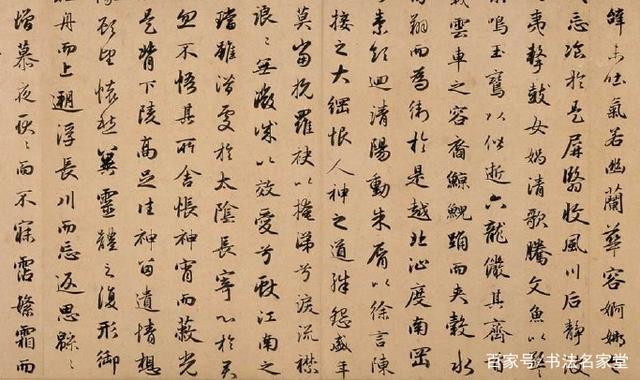 辭未吐氣若幽蘭華容婀娜
忘飡於是屏翳收風川后靜
夷擊鼓女媧清歌騰文魚以警
鳴玉鸞以偕逝六龍儼其齊
載雲車之容裔鯨鯢踊而夾轂水
翔而為衛於是越北沚度南岡
素領迴清陽動朱脣以徐言陳
接之大綱恨人神之道殊怨盛年
莫當抗羅袂以掩涕兮淚流襟
浪〻無微誠以效愛兮獻江南之
璫雖潛處於太陰長寄心於君
忽不悟其所舍悵神宵而蔽光
是背下陵高足往神留遺情想
顧望懷愁冀靈體之復形御
舟而上遡浮長川而忘返思緜〻
增慕夜耿〻而不寐霑繁霜而
百家号/书法名家堂